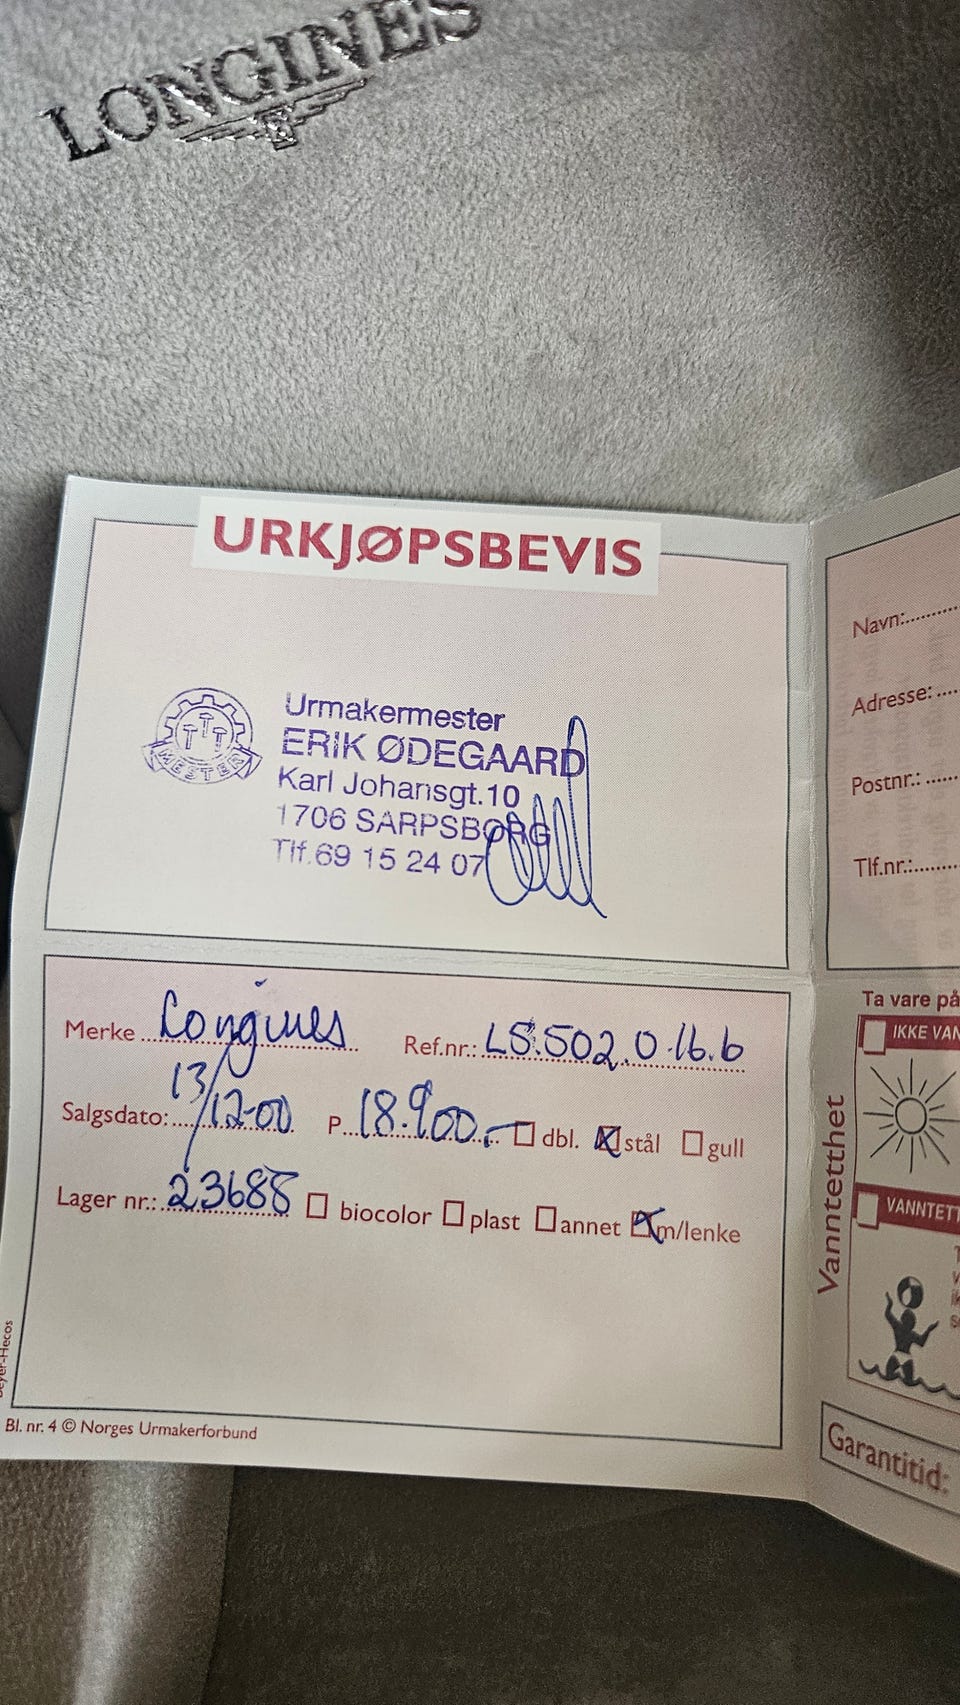 LONGINES
URKJØPSBEVIS
MESTER
Urmakermester
ERIK ØDEGAARD
Karl Johansgt.10
1706 SARPSBORG
Tlf.69 15 24 07
Merke Longines Ref.nr.: L5.502.0.16.6
Salgsdato: 13/12-00 P 18.900.- dbl. stål gull
Lager nr.: 23688 biocolor plast annet m/lenke
Bl. nr. 4 © Norges Urmakerforbund
Navn:
Adresse:
Postnr.:
Tlf.nr.:
Ta vare på
IKKE VAN
Vanntetthet
VANNTETT
Garantitid: